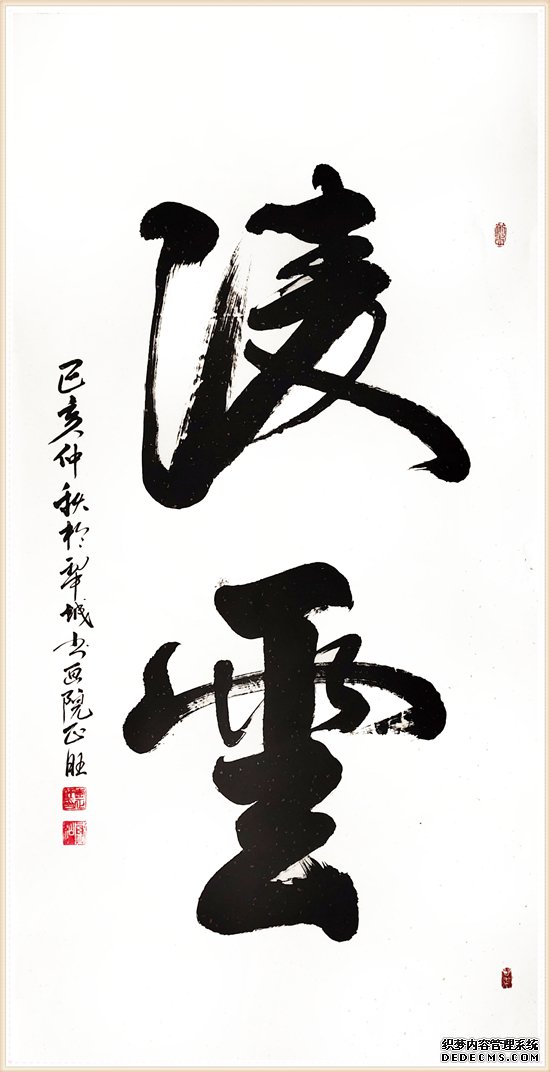 凌雲
己亥仲秋於城书画院正旺
织梦内容管理系统
DEDECMS.COM